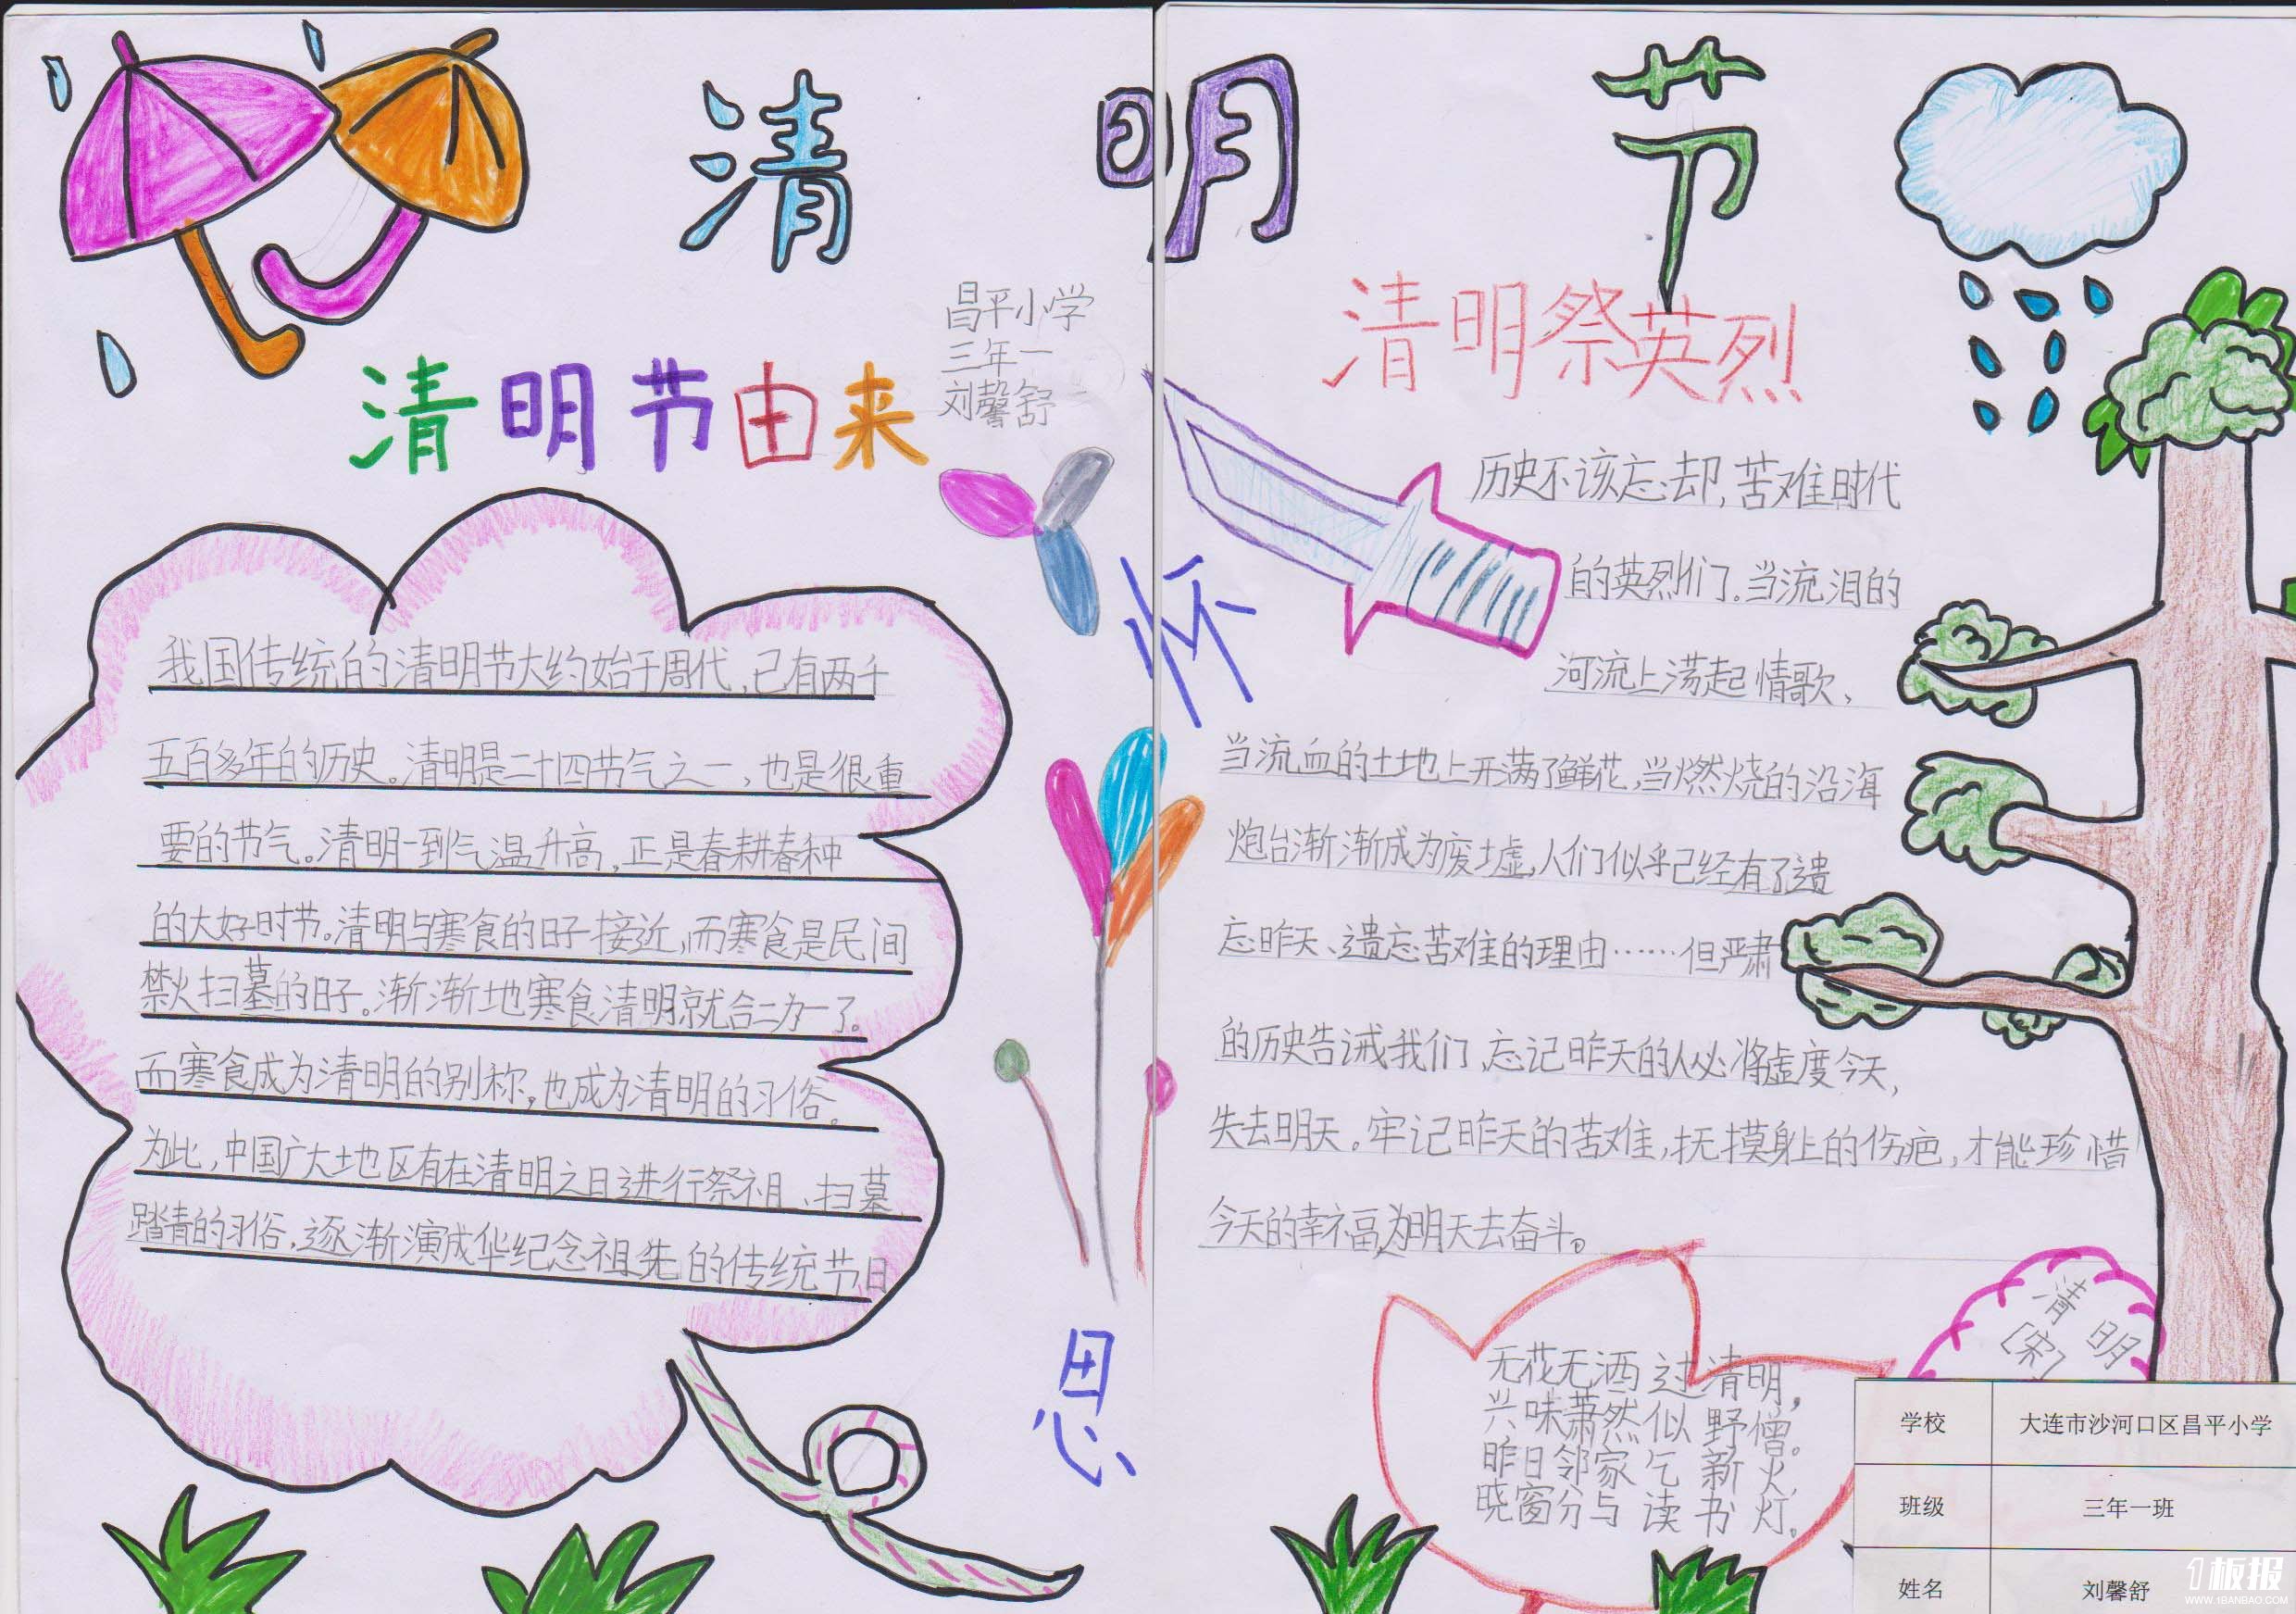 清明节
昌平小学
三年一
刘馨舒
清明节由来
我国传统的清明节大约始于周代，已有两千
五百多年的历史。清明是二十四节气之一，也是很重
要的节气。清明一到气温升高，正是春耕春种
的大好时节。清明与寒食的日子接近，而寒食是民间
禁火扫墓的日子。渐渐地寒食清明就合二为一了。
而寒食成为清明的别称，也成为清明的习俗。
为此，中国广大地区有在清明之日进行祭祖、扫墓、
踏青的习俗，逐渐演成华纪念祖先的传统节日
怀
思
清明祭英烈
历史不该忘却，苦难时代
的英烈们。当流泪的
河流上荡起情歌、
当流血的土地上开满了鲜花，当燃烧的沿海
炮台渐渐成为废墟，人们似乎已经有了遗
忘昨天、遗忘苦难的理由……但严肃
的历史告诫我们，忘记昨天的人必将虚度今天，
失去明天。牢记昨天的苦难，抚摸身上的伤疤，才能珍惜
今天的幸福，为明天去奋斗。
清明
[宋]
无花无酒过清明，
兴味萧然似野僧。
昨日邻家气新火，
晓窗分与读书灯。
学校 大连市沙河口区昌平小学
班级 三年一班
姓名 刘馨舒
1板报
WWW.1BANBAO.COM